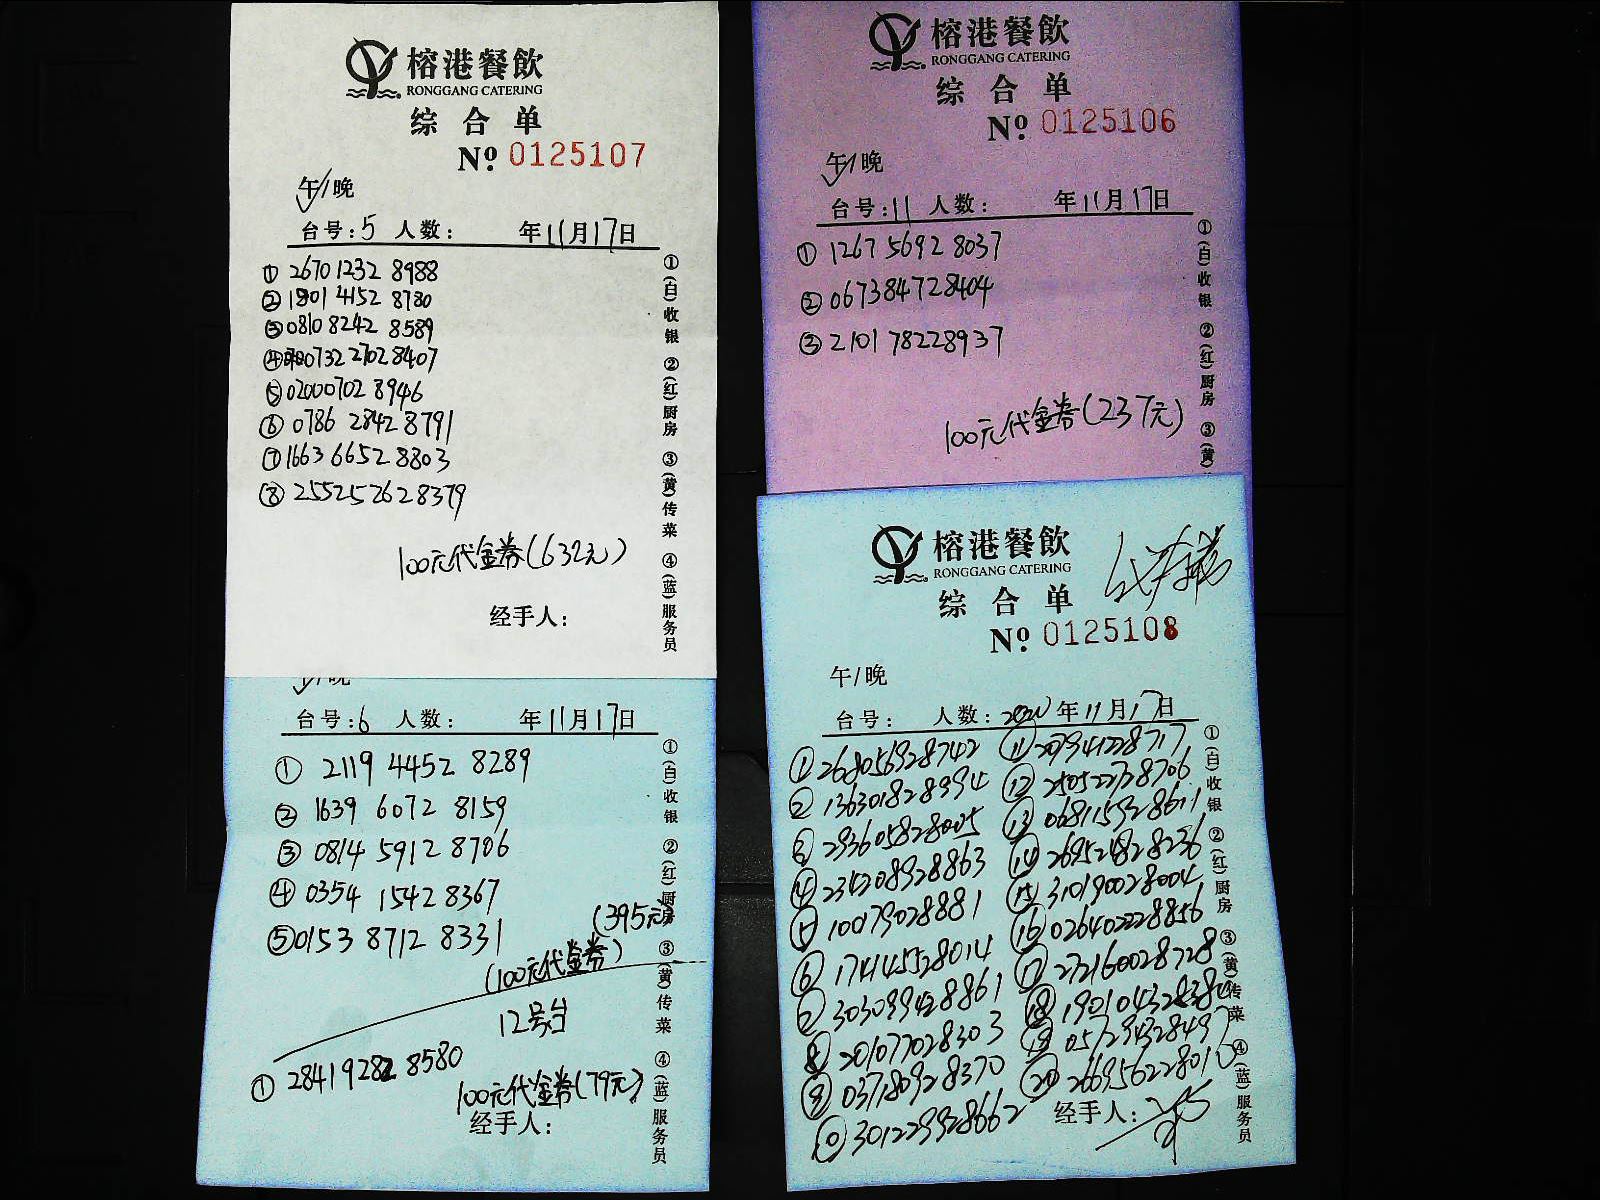 榕港餐飲
RONGGANG CATERING
综合单
Nº 0125107
午/晚
台号:5 人数: 年11月17日
① 2670 1232 8988
② 1801 4152 8780
③ 0810 8242 8589
④ 0732 2702 8407
⑤ 02000702 8946
⑥ 0786 2842 8791
⑦ 1663 6652 8803
⑧ 255252628379
100元代金券(632元)
经手人:
①(白)收银 ②(红)厨房 ③(黄)传菜 ④(蓝)服务员
午/晚
台号:6 人数: 年11月17日
① 2119 4452 8289
② 1639 6072 8159
③ 0814 5912 8706
④ 0354 1542 8367
⑤ 0153 8712 8331
(395元)
(100元代金券)
12号台
① 28419282 8580
100元代金券(79元)
经手人:
①(白)收银 ②(红)厨房 ③(黄)传菜 ④(蓝)服务员
榕港餐飲
RONGGANG CATERING
综合单
Nº 0125106
午/晚
台号:11 人数: 年11月17日
① 1267 5692 8037
② 067384728404
③ 2101 78228937
100元代金券(237元)
①(白)收银 ②(红)厨房 ③(黄)
榕港餐飲
RONGGANG CATERING
综合单
Nº 0125108
午/晚
台号: 人数: 年11月17日
① 268056928742 ⑪ 207941228717
② 136301828994 ⑫ 250522728706
③ 293605828005 ⑬ 068115928611
④ 234208928863 ⑭ 269524828236
⑤ 100179028881 ⑮ 310190028004
⑥ 174145528014 ⑯ 026402228856
⑦ 303099428861 ⑰ 272160028728
⑧ 201077028303 ⑱
⑨ 037180928370 ⑲ 057294328497
⑩ 301229928662 ⑳
经手人:
①(白)收银 ②(红)厨房 ③(黄)传菜 ④(蓝)服务员